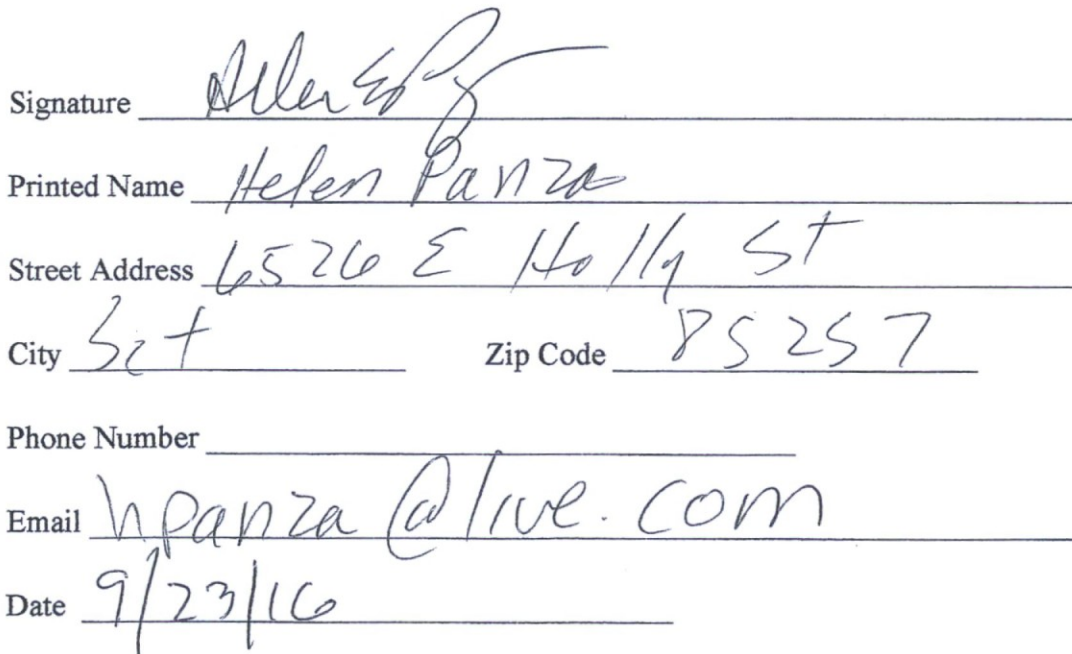 Signature Helen E P
Printed Name Helen Panza
Street Address 6526 E Holly St
City Sct Zip Code 85257
Phone Number
Email hpanza@live.com
Date 9/23/16